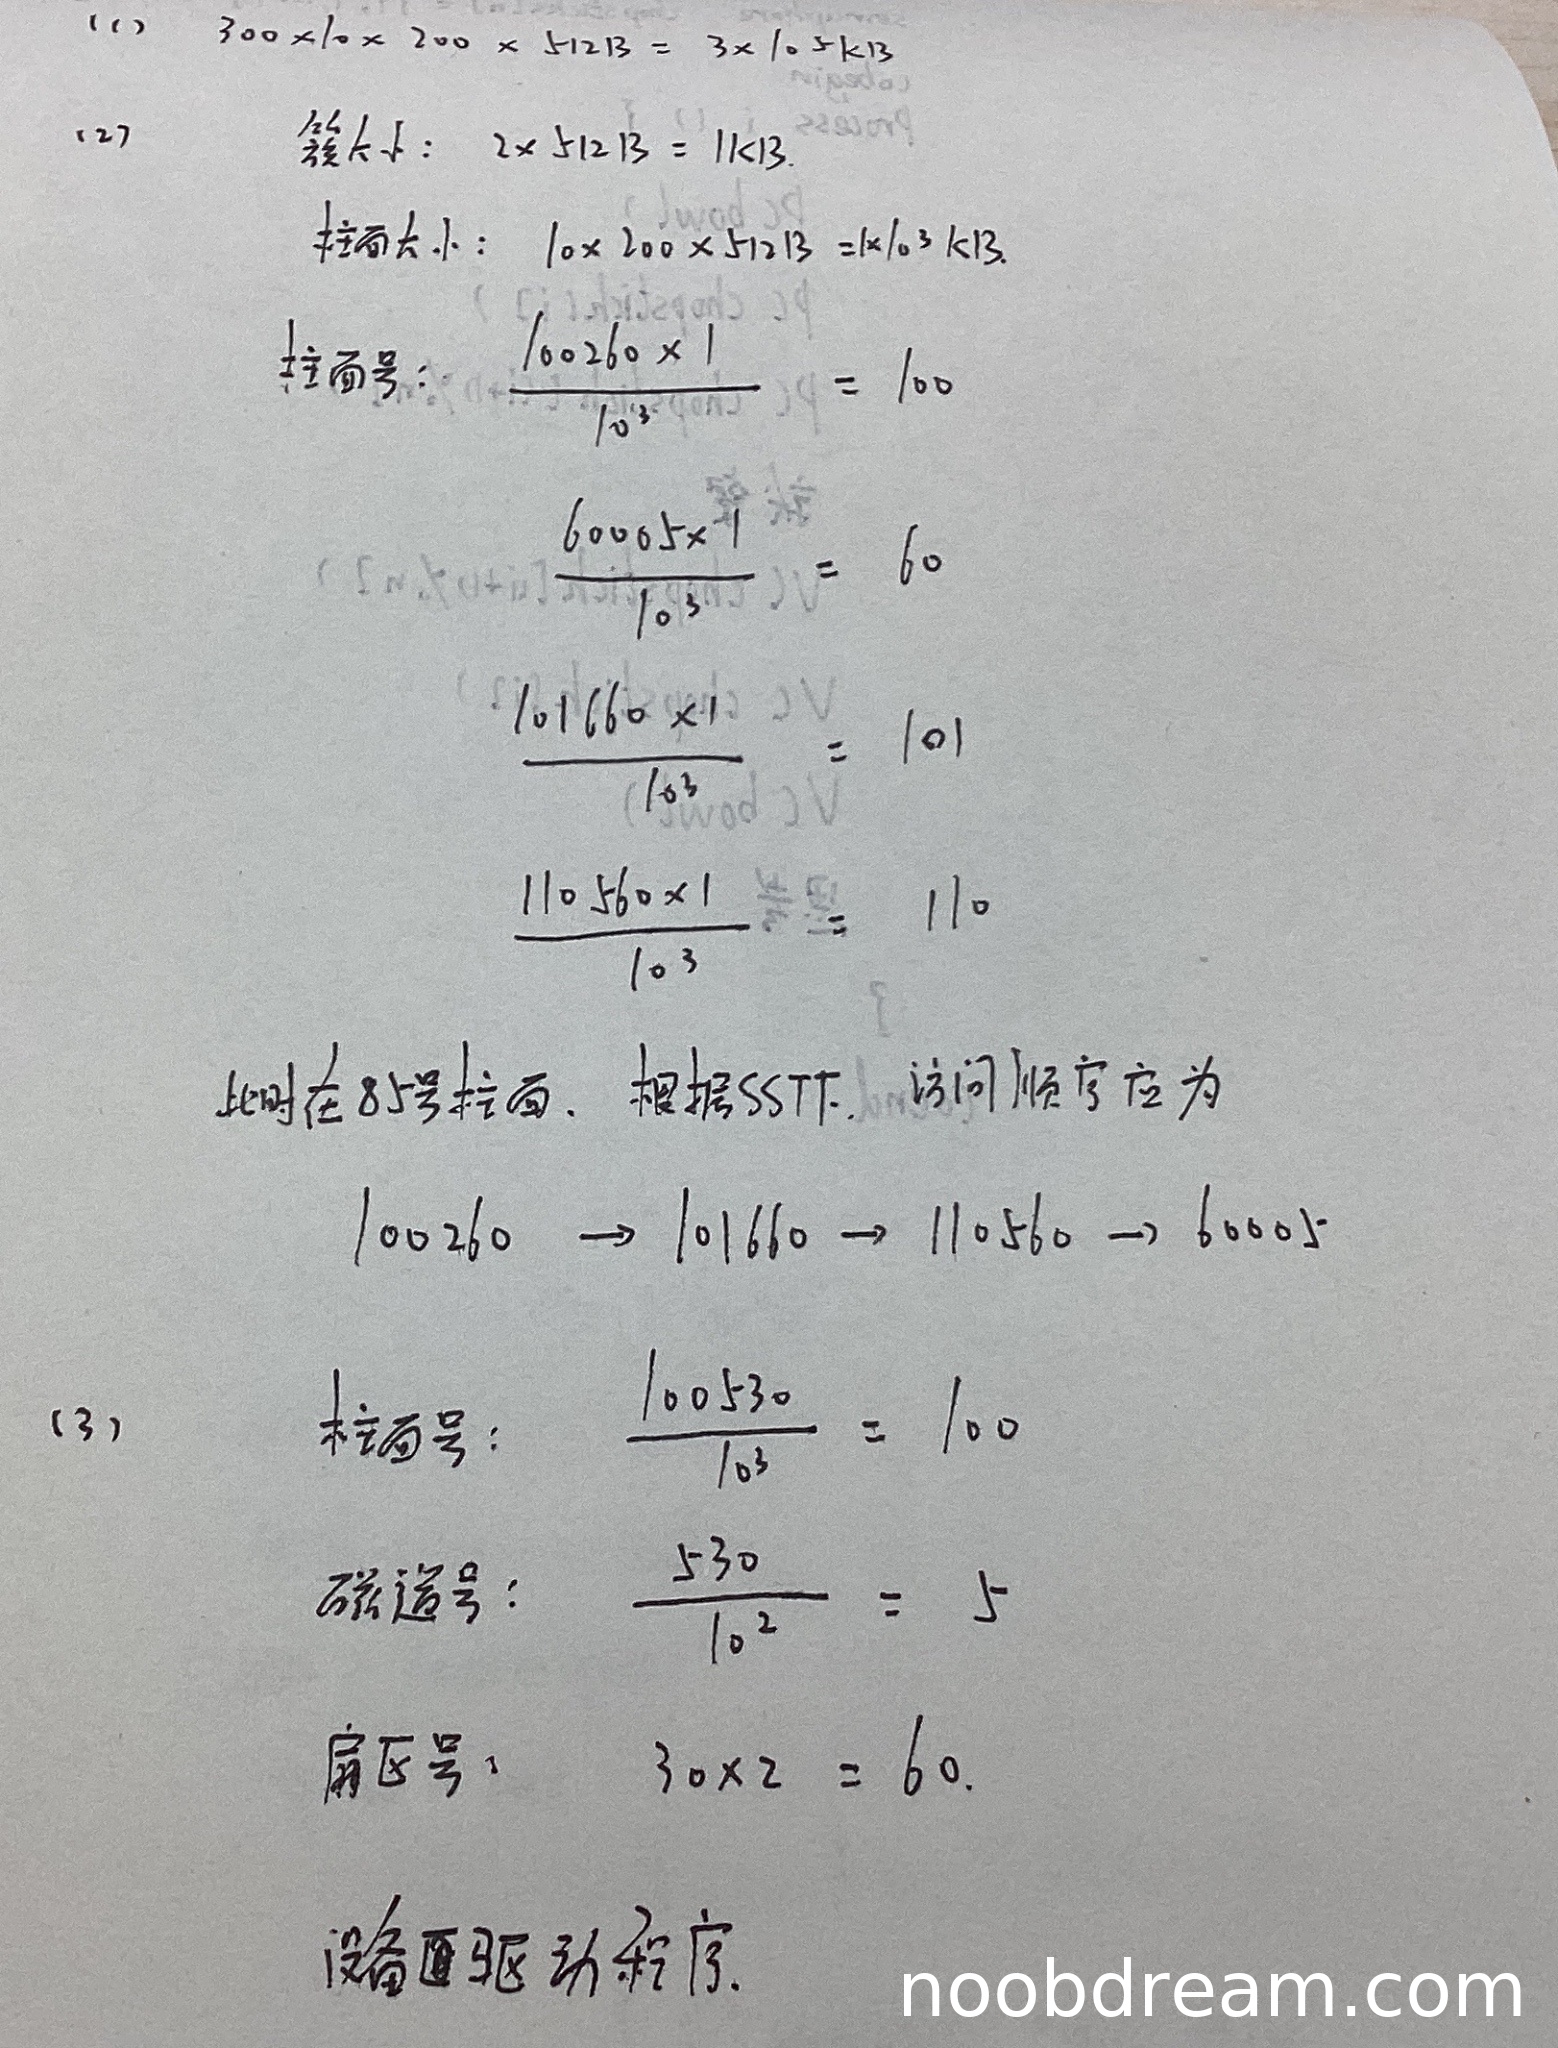 (1) 300×10×200×512B = 3×10⁵KB
(2) 簇大小: 2×512B = 1KB.
柱面大小: 10×200×512B =1×10³KB.
柱面号: 100260×1 / 10³ = 100
60005×1 / 10³ = 60
101660×1 / 10³ = 101
110560×1 / 10³ = 110
此时在85号柱面. 根据SSTF. 访问顺序应为
100260 → 101660 → 110560 → 60005
(3) 柱面号: 100530 / 10³ = 100
磁道号: 530 / 10² = 5
扇区号: 30×2 = 60.
设备驱动程序.
noobdream.com